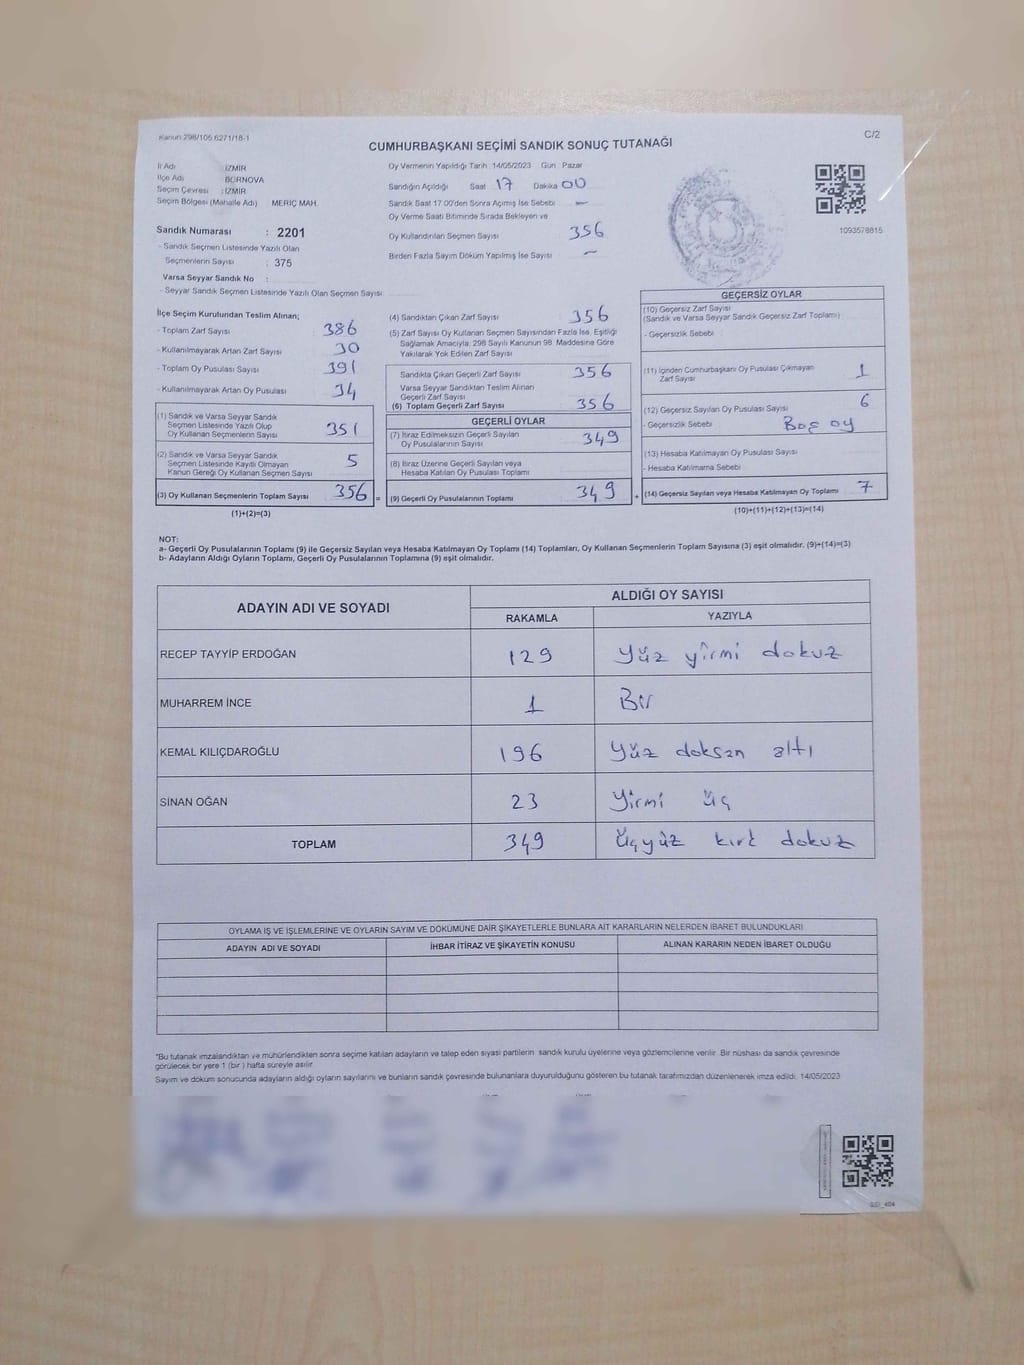 Kanun 298/105 6271/18-1
C/2
CUMHURBAŞKANI SEÇİMİ SANDIK SONUÇ TUTANAĞI
İl Adı : İZMİR
İlçe Adı : BORNOVA
Seçim Çevresi : İZMİR
Seçim Bölgesi (Mahalle Adı) MERİÇ MAH.
Sandık Numarası : 2201
- Sandık Seçmen Listesinde Yazılı Olan
Seçmenlerin Sayısı : 375
Varsa Seyyar Sandık No :
- Seyyar Sandık Seçmen Listesinde Yazılı Olan Seçmen Sayısı
Oy Vermenin Yapıldığı Tarih 14/05/2023 Gün Pazar
Sandığın Açıldığı Saat 17 Dakika 00
Sandık Saat 17:00'den Sonra Açılmış İse Sebebi -
Oy Verme Saati Bitiminde Sırada Bekleyen ve
Oy Kullandırılan Seçmen Sayısı 356
Birden Fazla Sayım Döküm Yapılmış İse Sayısı -
1093578815
İlçe Seçim Kurulundan Teslim Alınan;
- Toplam Zarf Sayısı : 386
- Kullanılmayarak Artan Zarf Sayısı : 30
- Toplam Oy Pusulası Sayısı : 391
- Kullanılmayarak Artan Oy Pusulası : 34
(1) Sandık ve Varsa Seyyar Sandık
Seçmen Listesinde Yazılı Olup
Oy Kullanan Seçmenlerin Sayısı 351
(2) Sandık ve Varsa Seyyar Sandık
Seçmen Listesinde Kayıtlı Olmayan
Kanun Gereği Oy Kullanan Seçmen Sayısı 5
(3) Oy Kullanan Seçmenlerin Toplam Sayısı 356 =
(1)+(2)=(3)
(4) Sandıktan Çıkan Zarf Sayısı 356
(5) Zarf Sayısı Oy Kullanan Seçmen Sayısından Fazla İse, Eşitliği
Sağlamak Amacıyla, 298 Sayılı Kanunun 98. Maddesine Göre
Yakılarak Yok Edilen Zarf Sayısı
Sandıkta Çıkan Geçerli Zarf Sayısı 356
Varsa Seyyar Sandıktan Teslim Alınan
Geçerli Zarf Sayısı
(6) Toplam Geçerli Zarf Sayısı 356
GEÇERLİ OYLAR
(7) İtiraz Edilmeksizin Geçerli Sayılan
Oy Pusulalarının Sayısı 349
(8) İtiraz Üzerine Geçerli Sayılan veya
Hesaba Katılan Oy Pusulası Toplamı
(9) Geçerli Oy Pusulalarının Toplamı 349 +
GEÇERSİZ OYLAR
(10) Geçersiz Zarf Sayısı
(Sandık ve Varsa Seyyar Sandık Geçersiz Zarf Toplamı)
- Geçersizlik Sebebi :
(11) İçinden Cumhurbaşkanı Oy Pusulası Çıkmayan
Zarf Sayısı 1
(12) Geçersiz Sayılan Oy Pusulası Sayısı 6
- Geçersizlik Sebebi Boş oy
(13) Hesaba Katılmayan Oy Pusulası Sayısı
- Hesaba Katılmama Sebebi
(14) Geçersiz Sayılan veya Hesaba Katılmayan Oy Toplamı 7
(10)+(11)+(12)+(13)=(14)
NOT:
a- Geçerli Oy Pusulalarının Toplamı (9) ile Geçersiz Sayılan veya Hesaba Katılmayan Oy Toplamı (14) Toplamları, Oy Kullanan Seçmenlerin Toplam Sayısına (3) eşit olmalıdır. (9)+(14)=(3)
b- Adayların Aldığı Oyların Toplamı, Geçerli Oy Pusulalarının Toplamına (9) eşit olmalıdır.
ADAYIN ADI VE SOYADI
ALDIĞI OY SAYISI
RAKAMLA YAZIYLA
RECEP TAYYİP ERDOĞAN 129 Yüz yirmi dokuz
MUHARREM İNCE 1 Bir
KEMAL KILIÇDAROĞLU 196 Yüz doksan altı
SİNAN OĞAN 23 Yirmi üç
TOPLAM 349 Üçyüz kırk dokuz
OYLAMA İŞ VE İŞLEMLERİNE VE OYLARIN SAYIM VE DÖKÜMÜNE DAİR ŞİKAYETLERLE BUNLARA AİT KARARLARIN NELERDEN İBARET BULUNDUKLARI
ADAYIN ADI VE SOYADI İHBAR İTİRAZ VE ŞİKAYETİN KONUSU ALINAN KARARIN NEDEN İBARET OLDUĞU
*Bu tutanak imzalandıktan ve mühürlendikten sonra seçime katılan adayların ve talep eden siyasi partilerin sandık kurulu üyelerine veya gözlemcilerine verilir. Bir nüshası da sandık çevresinde
görülecek bir yere 1 (bir) hafta süreyle asılır.
Sayım ve döküm sonucunda adayların aldığı oyların sayılarını ve bunların sandık çevresinde bulunanlara duyurulduğunu gösteren bu tutanak tarafımızdan düzenlenerek imza edildi. 14/05/2023